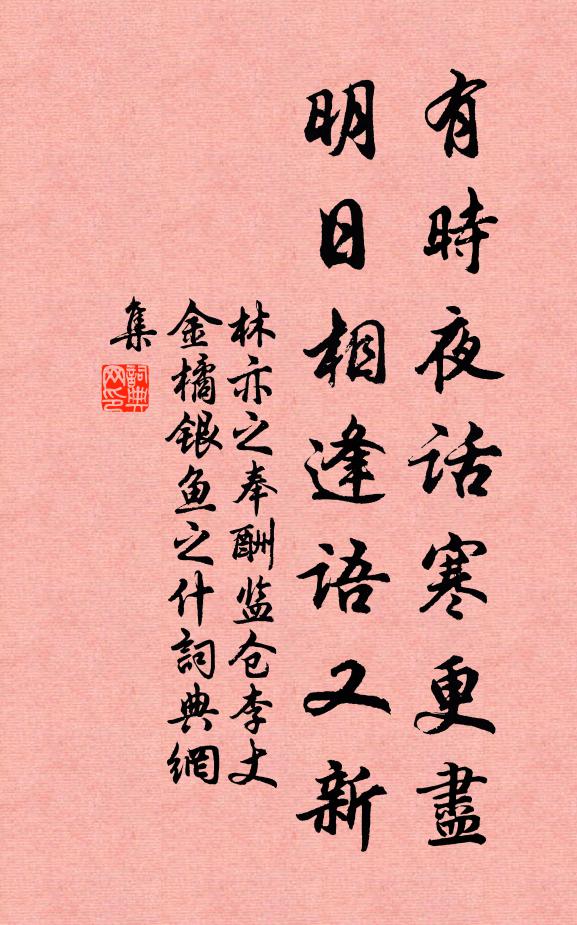 有時夜话寒更盡
明日相逢語又新
林亦之奉酬监仓李丈
金橘银鱼之什詞典網
集
詞典
网印